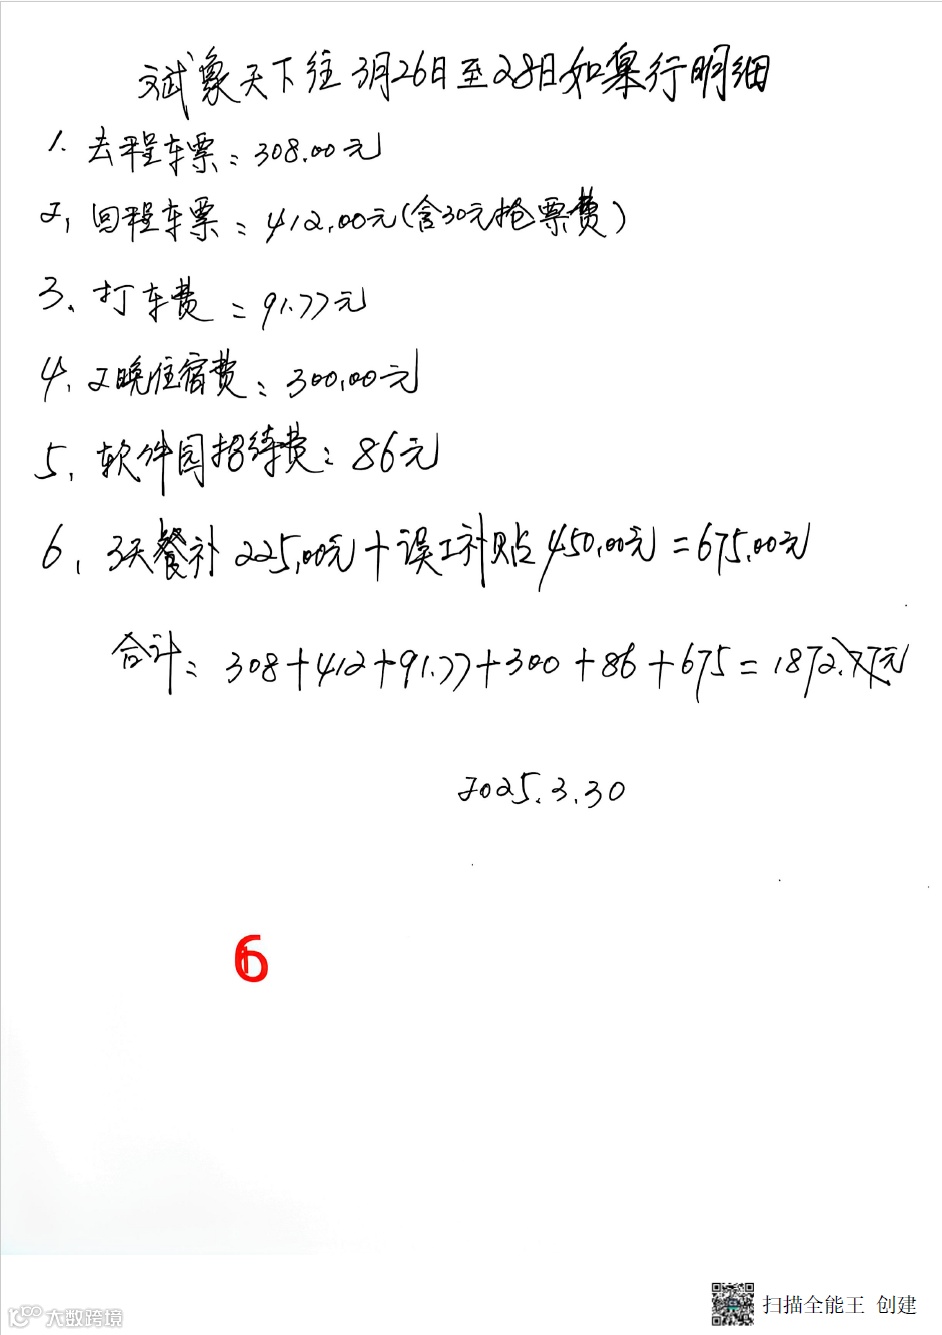 斌象天下往3月26日至28日如皋行明细
1.去程车票:308.00元
2,回程车票:412.00元(含30元抢票费)
3、打车费:91.77元
4,2晚住宿费:300.00元
5,软件园招待费:86元
6,3天餐补225.00元+误工补贴450.00元=675.00元
合计:308+412+91.77+300+86+675=1872.77元
2025.3.30
6
大数跨境
扫描全能王 创建